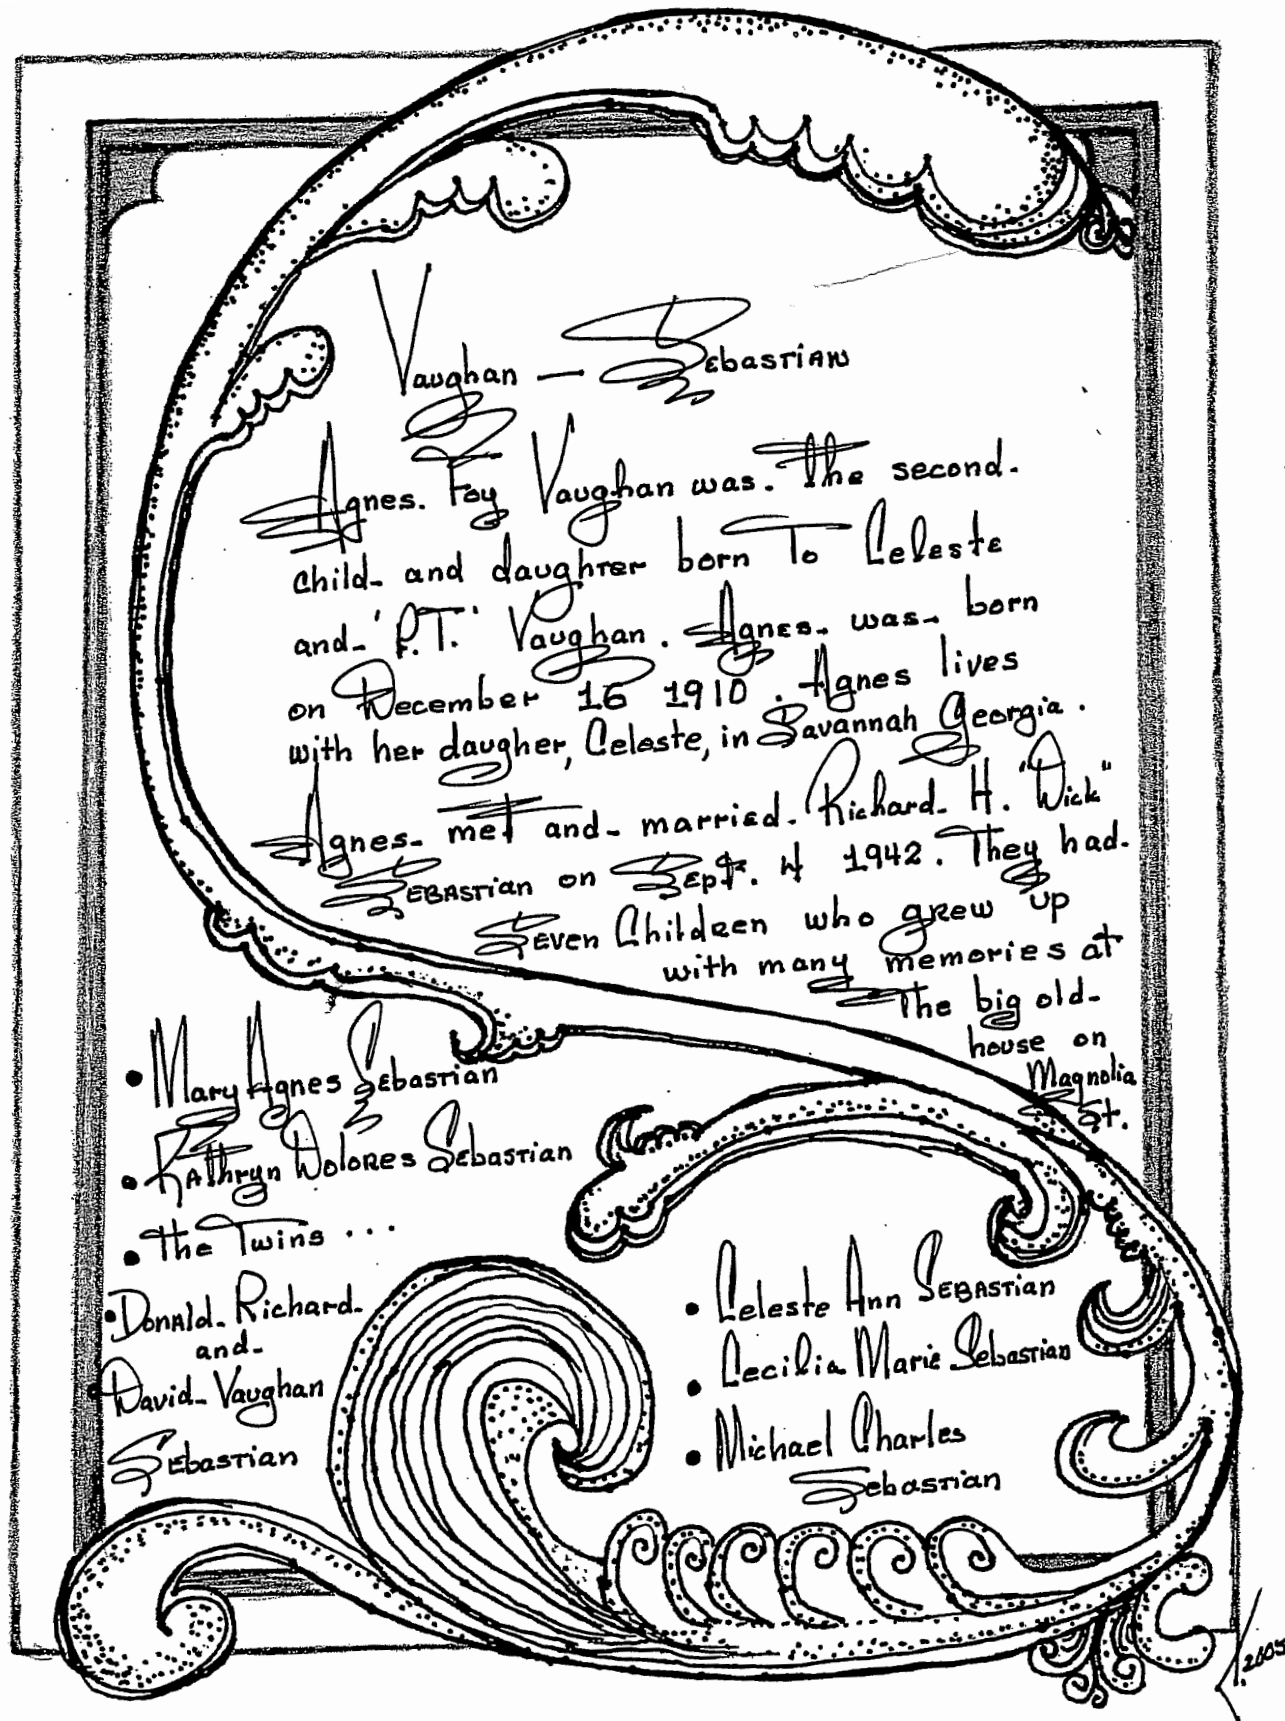 Vaughan — Sebastian
Agnes. Foy Vaughan was. The second.
child- and daughter born To Celeste
and- 'P.T.' Vaughan. Agnes- was- born
on December 16 1910. Agnes lives
with her daugher, Celeste, in Savannah Georgia.
Agnes- met and- married- Richard- H. "Dick"
Sebastian on Sept. 4 1942. They had-
Seven Children who grew up
with many memories at
The big old-
house on
Magnolia
St.
• Mary Agnes Sebastian
• Kathryn Dolores Sebastian
• The Twins ...
• Donald- Richard-
and-
• David- Vaughan
Sebastian
• Celeste Ann Sebastian
• Cecilia Marie Sebastian
• Michael Charles
Sebastian
2005